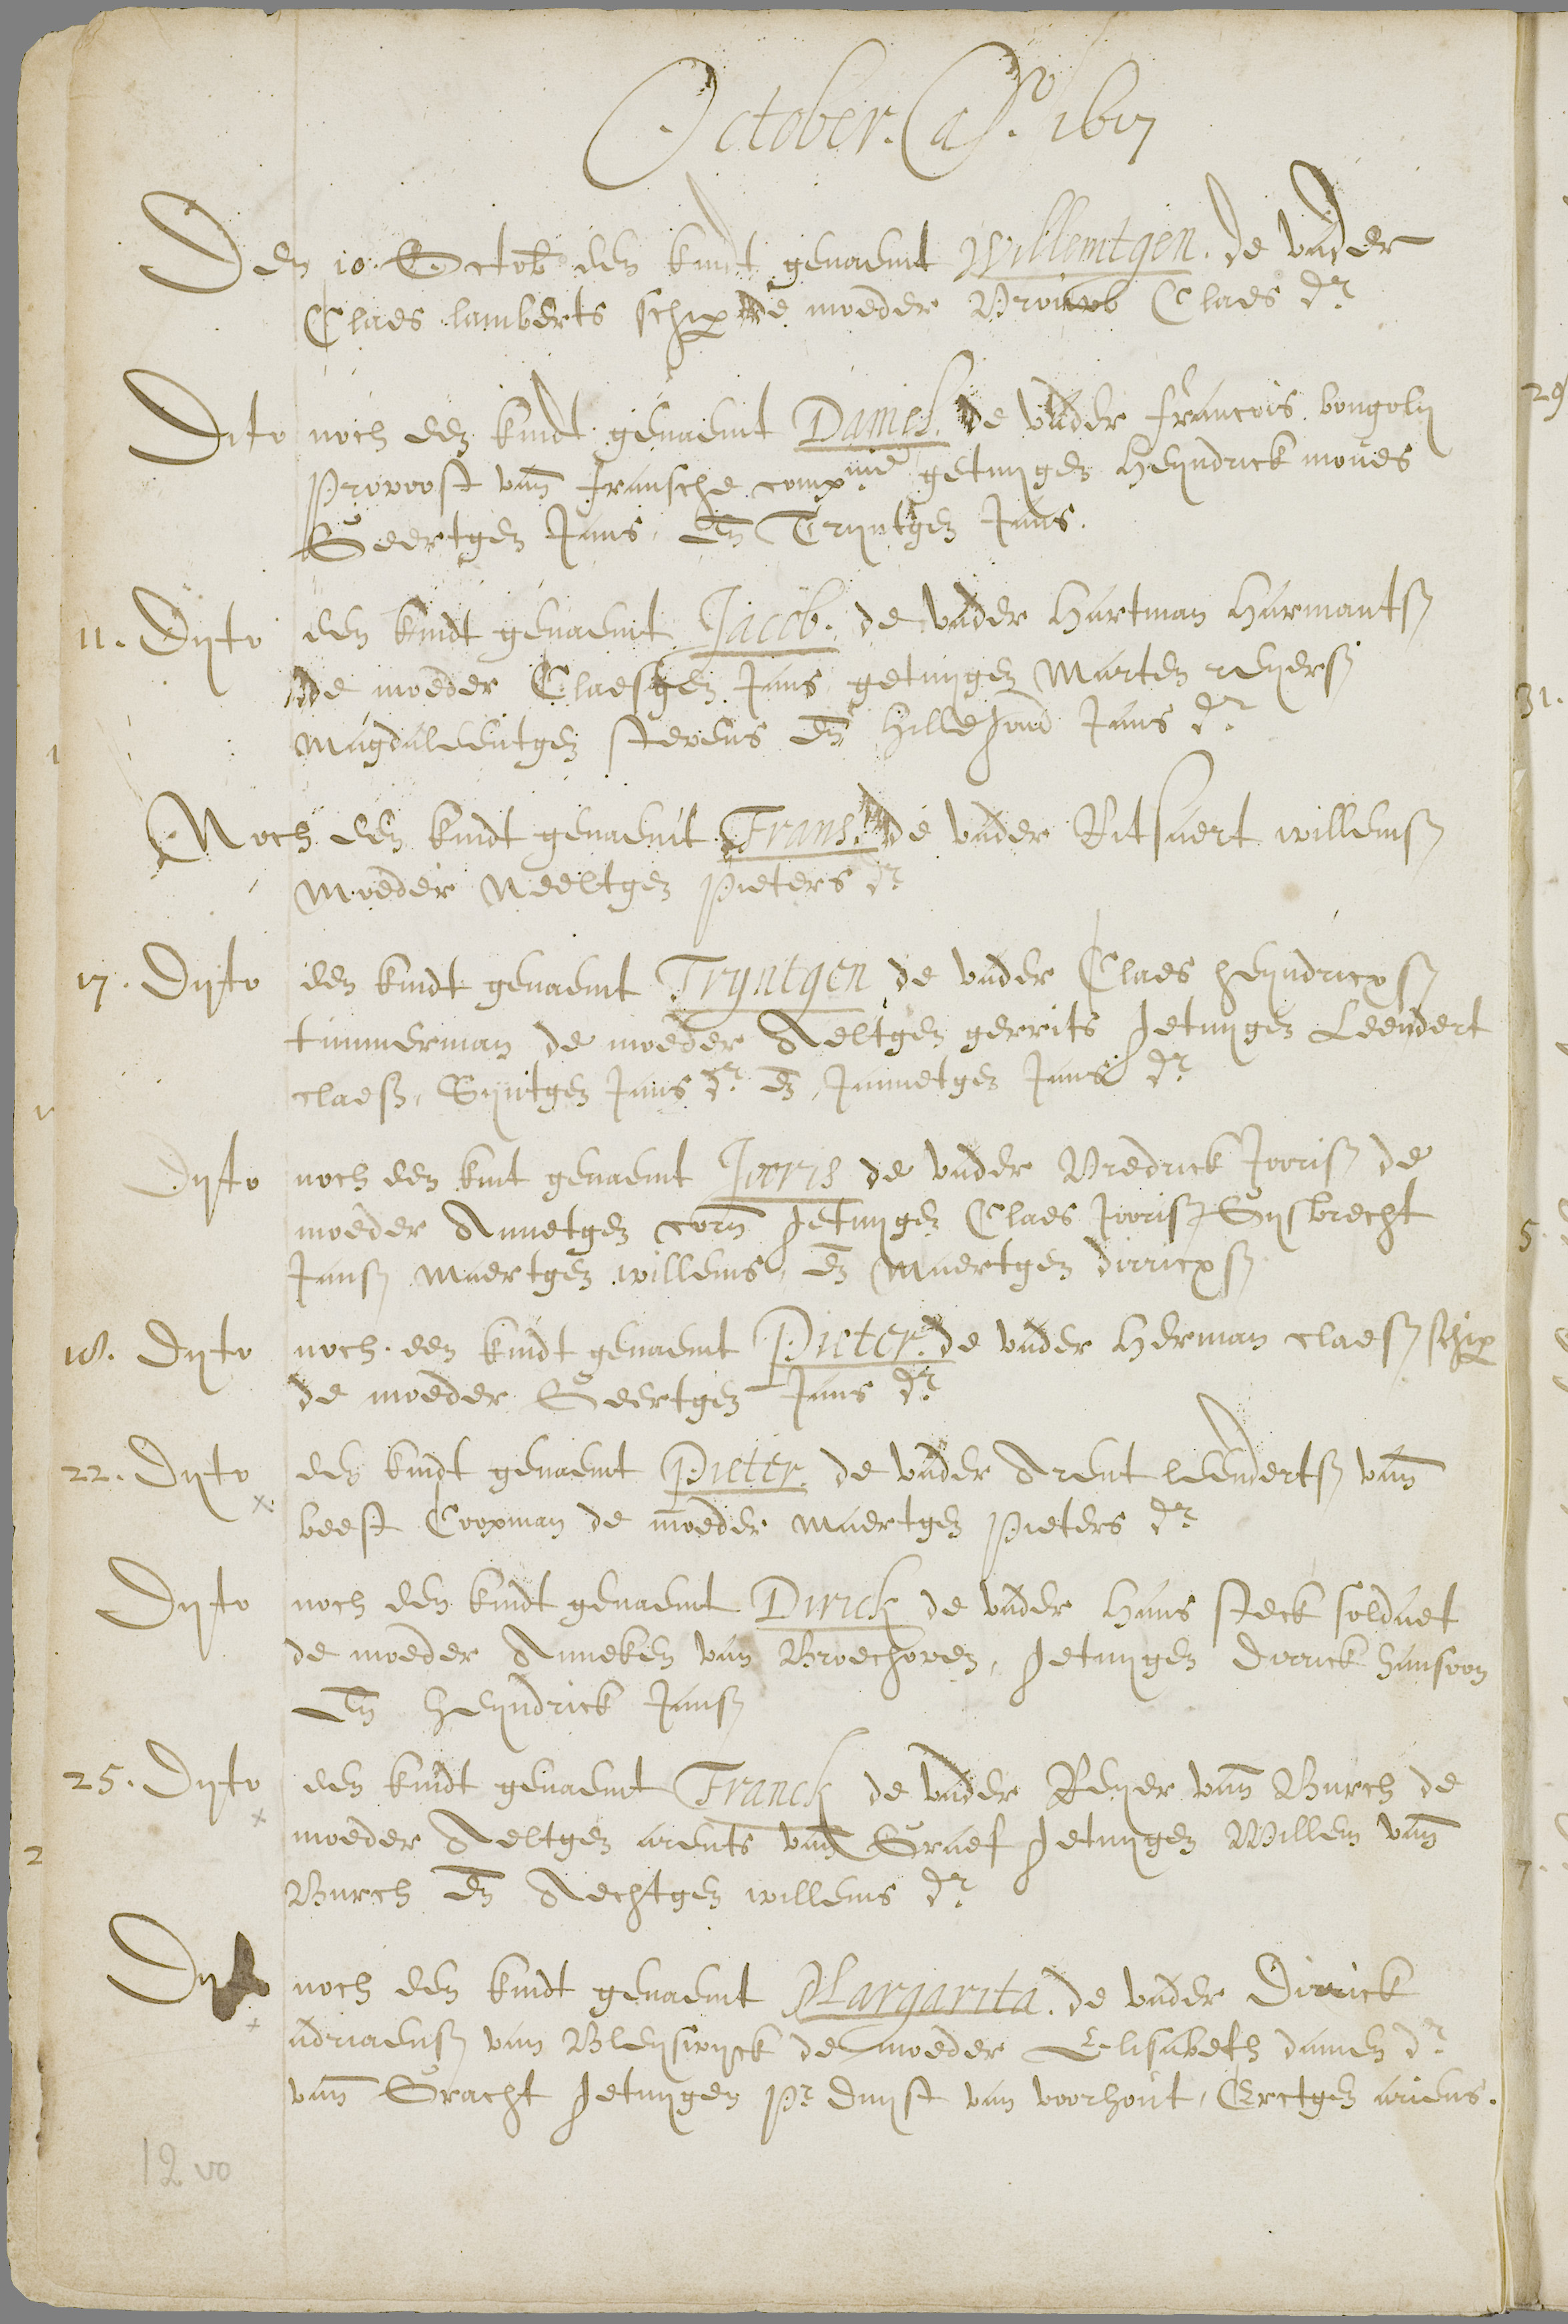 October. A°. 1617
Den 10. Octob een kindt genaemt Willemtgen. de vader
Claes lamberts schip de moeder Vrouwb Claes dr
Dito noch een kindt genaemt Daniel. de vader francois
Provoost van fransche compnie getuijgen Heijndrick mones
Geertgen Jans, en Trijntgen Jans.
11. Dijto een kindt genaemt Jacob. de vader Hartman Harmantsz
de moeder Claesgen Jans getuijgen Marten reijersz
Magdaleentgen stevens en Hillegond Jans dr
Noch een kindt genaemt Frans. de vader Ritsaert willemsz
Moeder Neeltgen pieters dr
17. Dijto een kindt genaemt Tryntgen de vader Claes heijndricxsz
timmerman de moeder Aeltgen gerrits getuijgen Leendert
claesz, Gijntgen Jans dr en Jannetgen Jans dr
Dijto noch een kint genaemt Joris de vader Vredrick Joorisz de
moeder Annetgen corn getuijgen Claes Joorisz Gijsbrecht
Jansz Maertgen willems, en Maertgen dirricxsz
18. Dijto noch een kindt genaemt Pieter. de vader Herman claesz schip
de moeder Geertgen Jans dr
22. Dijto een kindt genaemt Pieter. de vader Arent leendertsz van
beest Coopman de moeder Maertgen pieters dr
Dijto noch een kindt genaemt Dirick de vader Hans steck soldaet
de moeder Anneken van Broechoven, getuijgen Dirrick hansoon
en heijndrick Jansz
25. Dijto een kindt genaemt Franck de vader Reijer van Burch de
moeder Aeltgen arents van Graef getuijgen Willem van
Burch en Aechtgen willems dr
noch een kindt genaemt Margarita. de vader Dirrick
adriaensz van Bleijswijck de moeder Elisabeth damen dr
van Gracht getuijgen pr duijst van voorhout, Grietgen ariens.
12 vo
29
31.
5.
7.